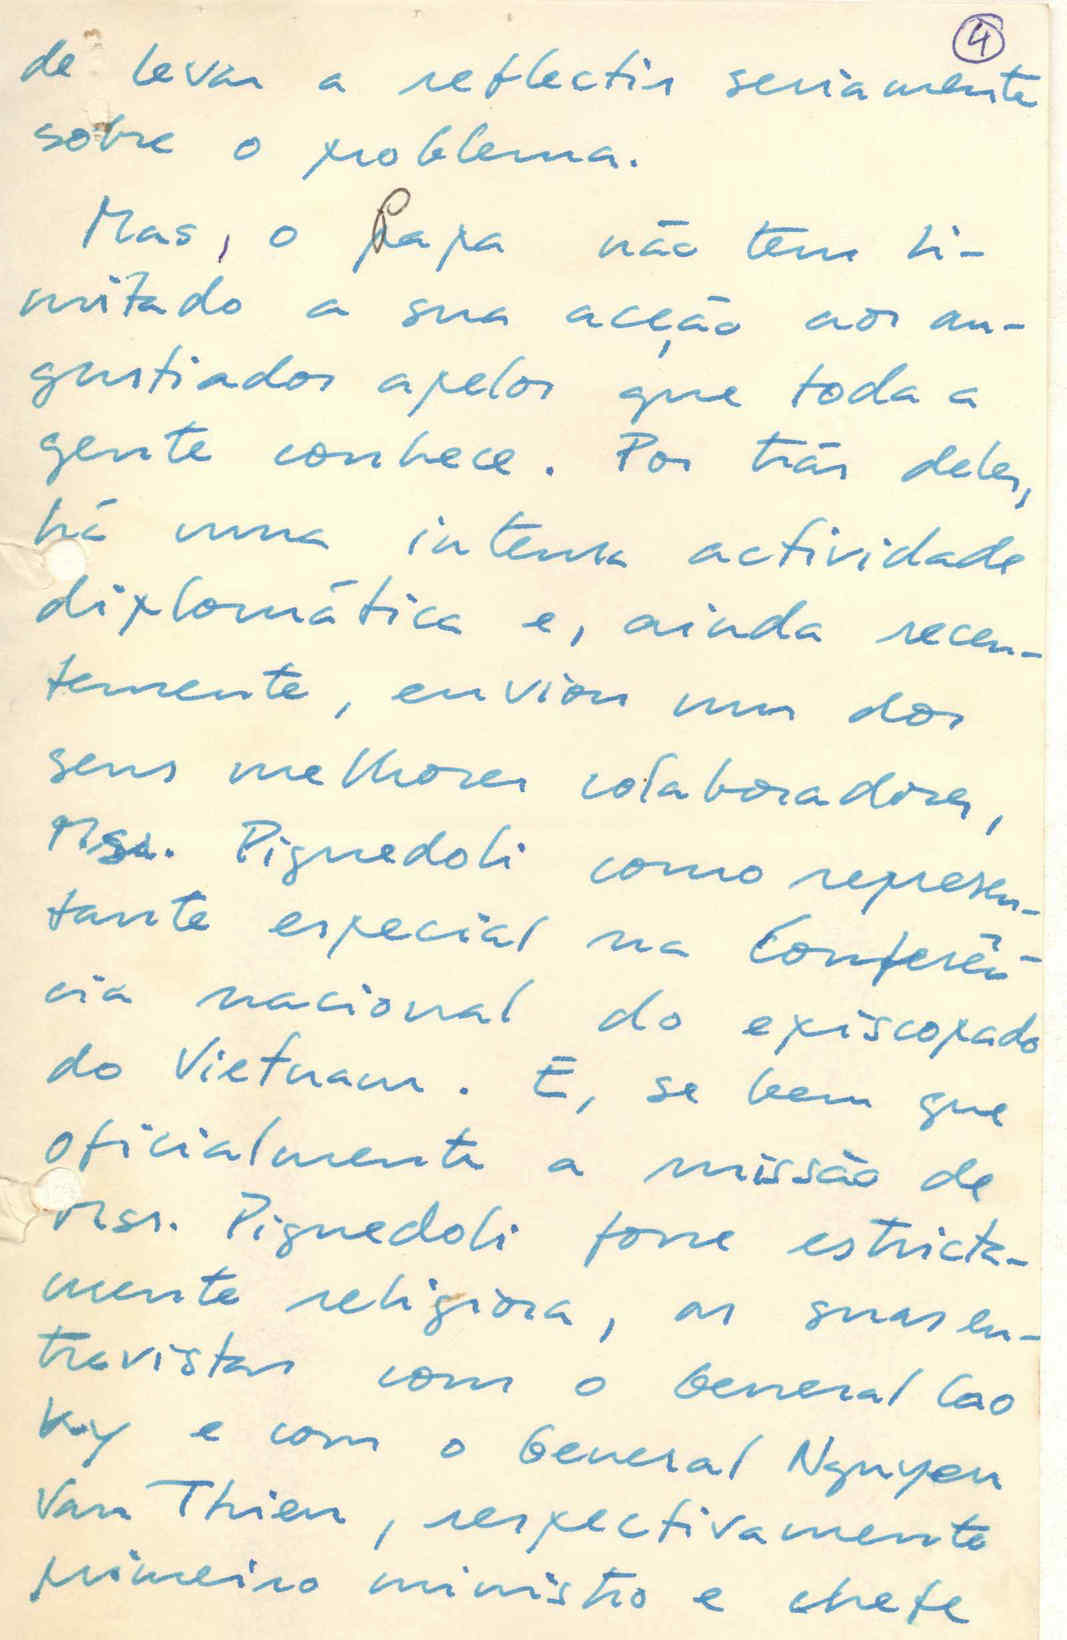 4
de levar a reflectir seriamente
sobre o problema.
Mas, o Papa não tem li-
mitado a sua acção aos an-
gustiados apelos que toda a
gente conhece. Por trás deles,
há uma intensa actividade
diplomática e, ainda recen-
temente, enviou um dos
seus melhores colaboradores,
Msr. Pignedoli como represen-
tante especial na Conferên-
cia nacional do episcopado
do Vietnam. E, se bem que
oficialmente a missão de
Msr. Pignedoli fosse estricta-
mente religiosa, as suas en-
trevistas com o General Cao
Ky e com o General Nguyen
Van Thieu, respectivamente
primeiro ministro e chefe